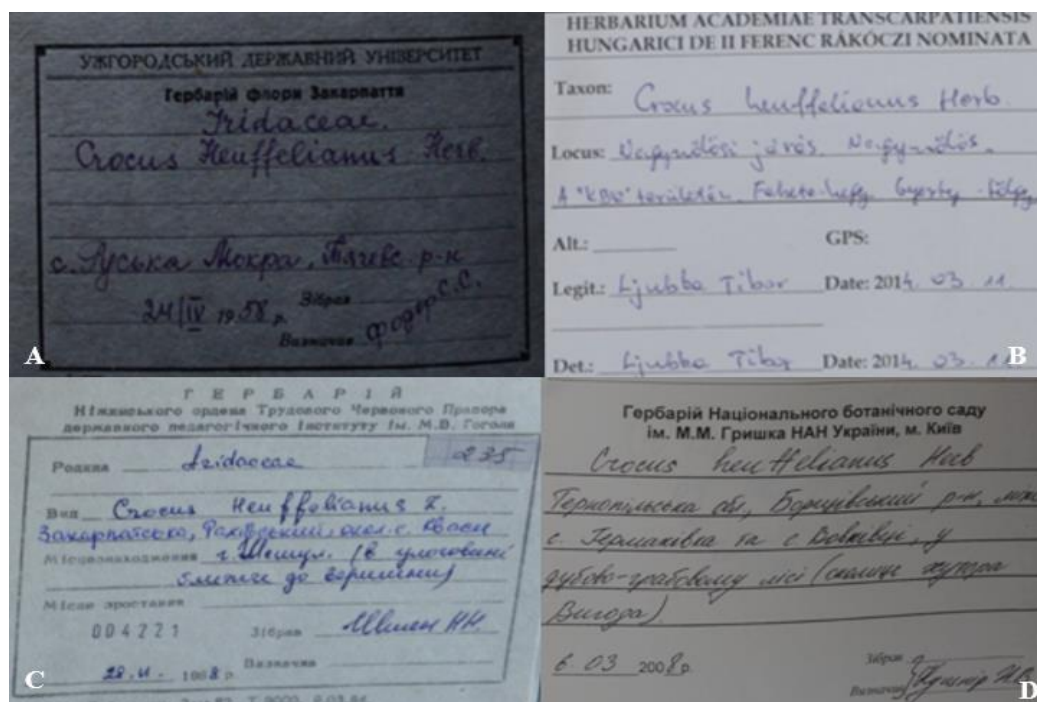 УЖГОРОДСЬКИЙ ДЕРЖАВНИЙ УНІВЕРСИТЕТ
Гербарій флори Закарпаття
Iridaceae.
Crocus Heuffelianus Herb.
с. Руська Мокра, Тячевс. р-н
24/IV 1958 р. Зібрав
Визначив Фодор С.С.
A
HERBARIUM ACADEMIAE TRANSCARPATIENSIS
HUNGARICI DE II FERENC RÁKÓCZI NOMINATA
Taxon: Crocus heuffelianus Herb.
Locus: Nagyszőlősi járás. Nagyszőlős.
A "KBO" területén. Fekete-hegy.
Alt.: GPS:
Legit.: Ljubka Tibor Date: 2014. 03. 11.
Det.: Ljubka Tibor Date: 2014. 03. 11
B
ГЕРБАРІЙ
Ніжинського ордена Трудового Червоного Прапора
державного педагогічного інституту ім. М.В. Гоголя
Родина Iridaceae 235
Вид Crocus Heuffelianus L.
Закарпатська, Рахівський, окол. с. Кваси
Місцезнаходження г. Шешул. (в улоговині
ближче до вершини)
Місце зростання
004221 Зібрав
Визначив
C
Гербарій Національного ботанічного саду
ім. М.М. Гришка НАН України, м. Київ
Crocus heuffelianus Herb
Тернопільська обл, Борщівський р-н, між
с. Гермаківка та с Вовківці, у
дубово-грабовому лісі (околиця хутра
Вигода).
6. 03 2008 р. Зібрав
Визначив
D